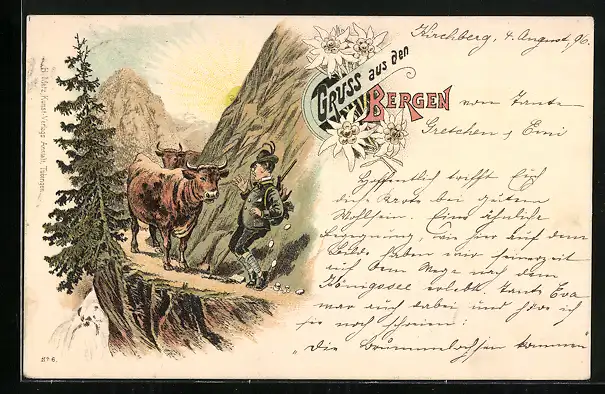 Kirchberg, 4. August, 96.
GRUSS aus den
BERGEN
von Tante
Gretchen & Emi
Hoffentlich trifft Euch
diese Karte bei gutem
Wohlsein. Eine ähnliche
Begegnung, wie hier auf dem
Bilde haben wir seinerzeit
auf dem Wege nach dem
Königssee erlebt. Tante Eva
war auch dabei und höre ich
sie noch schreien:
"Die Brummelochsen kommen"
B. Metz, Kunst-Verlags-Anstalt, Tübingen.
No 6.